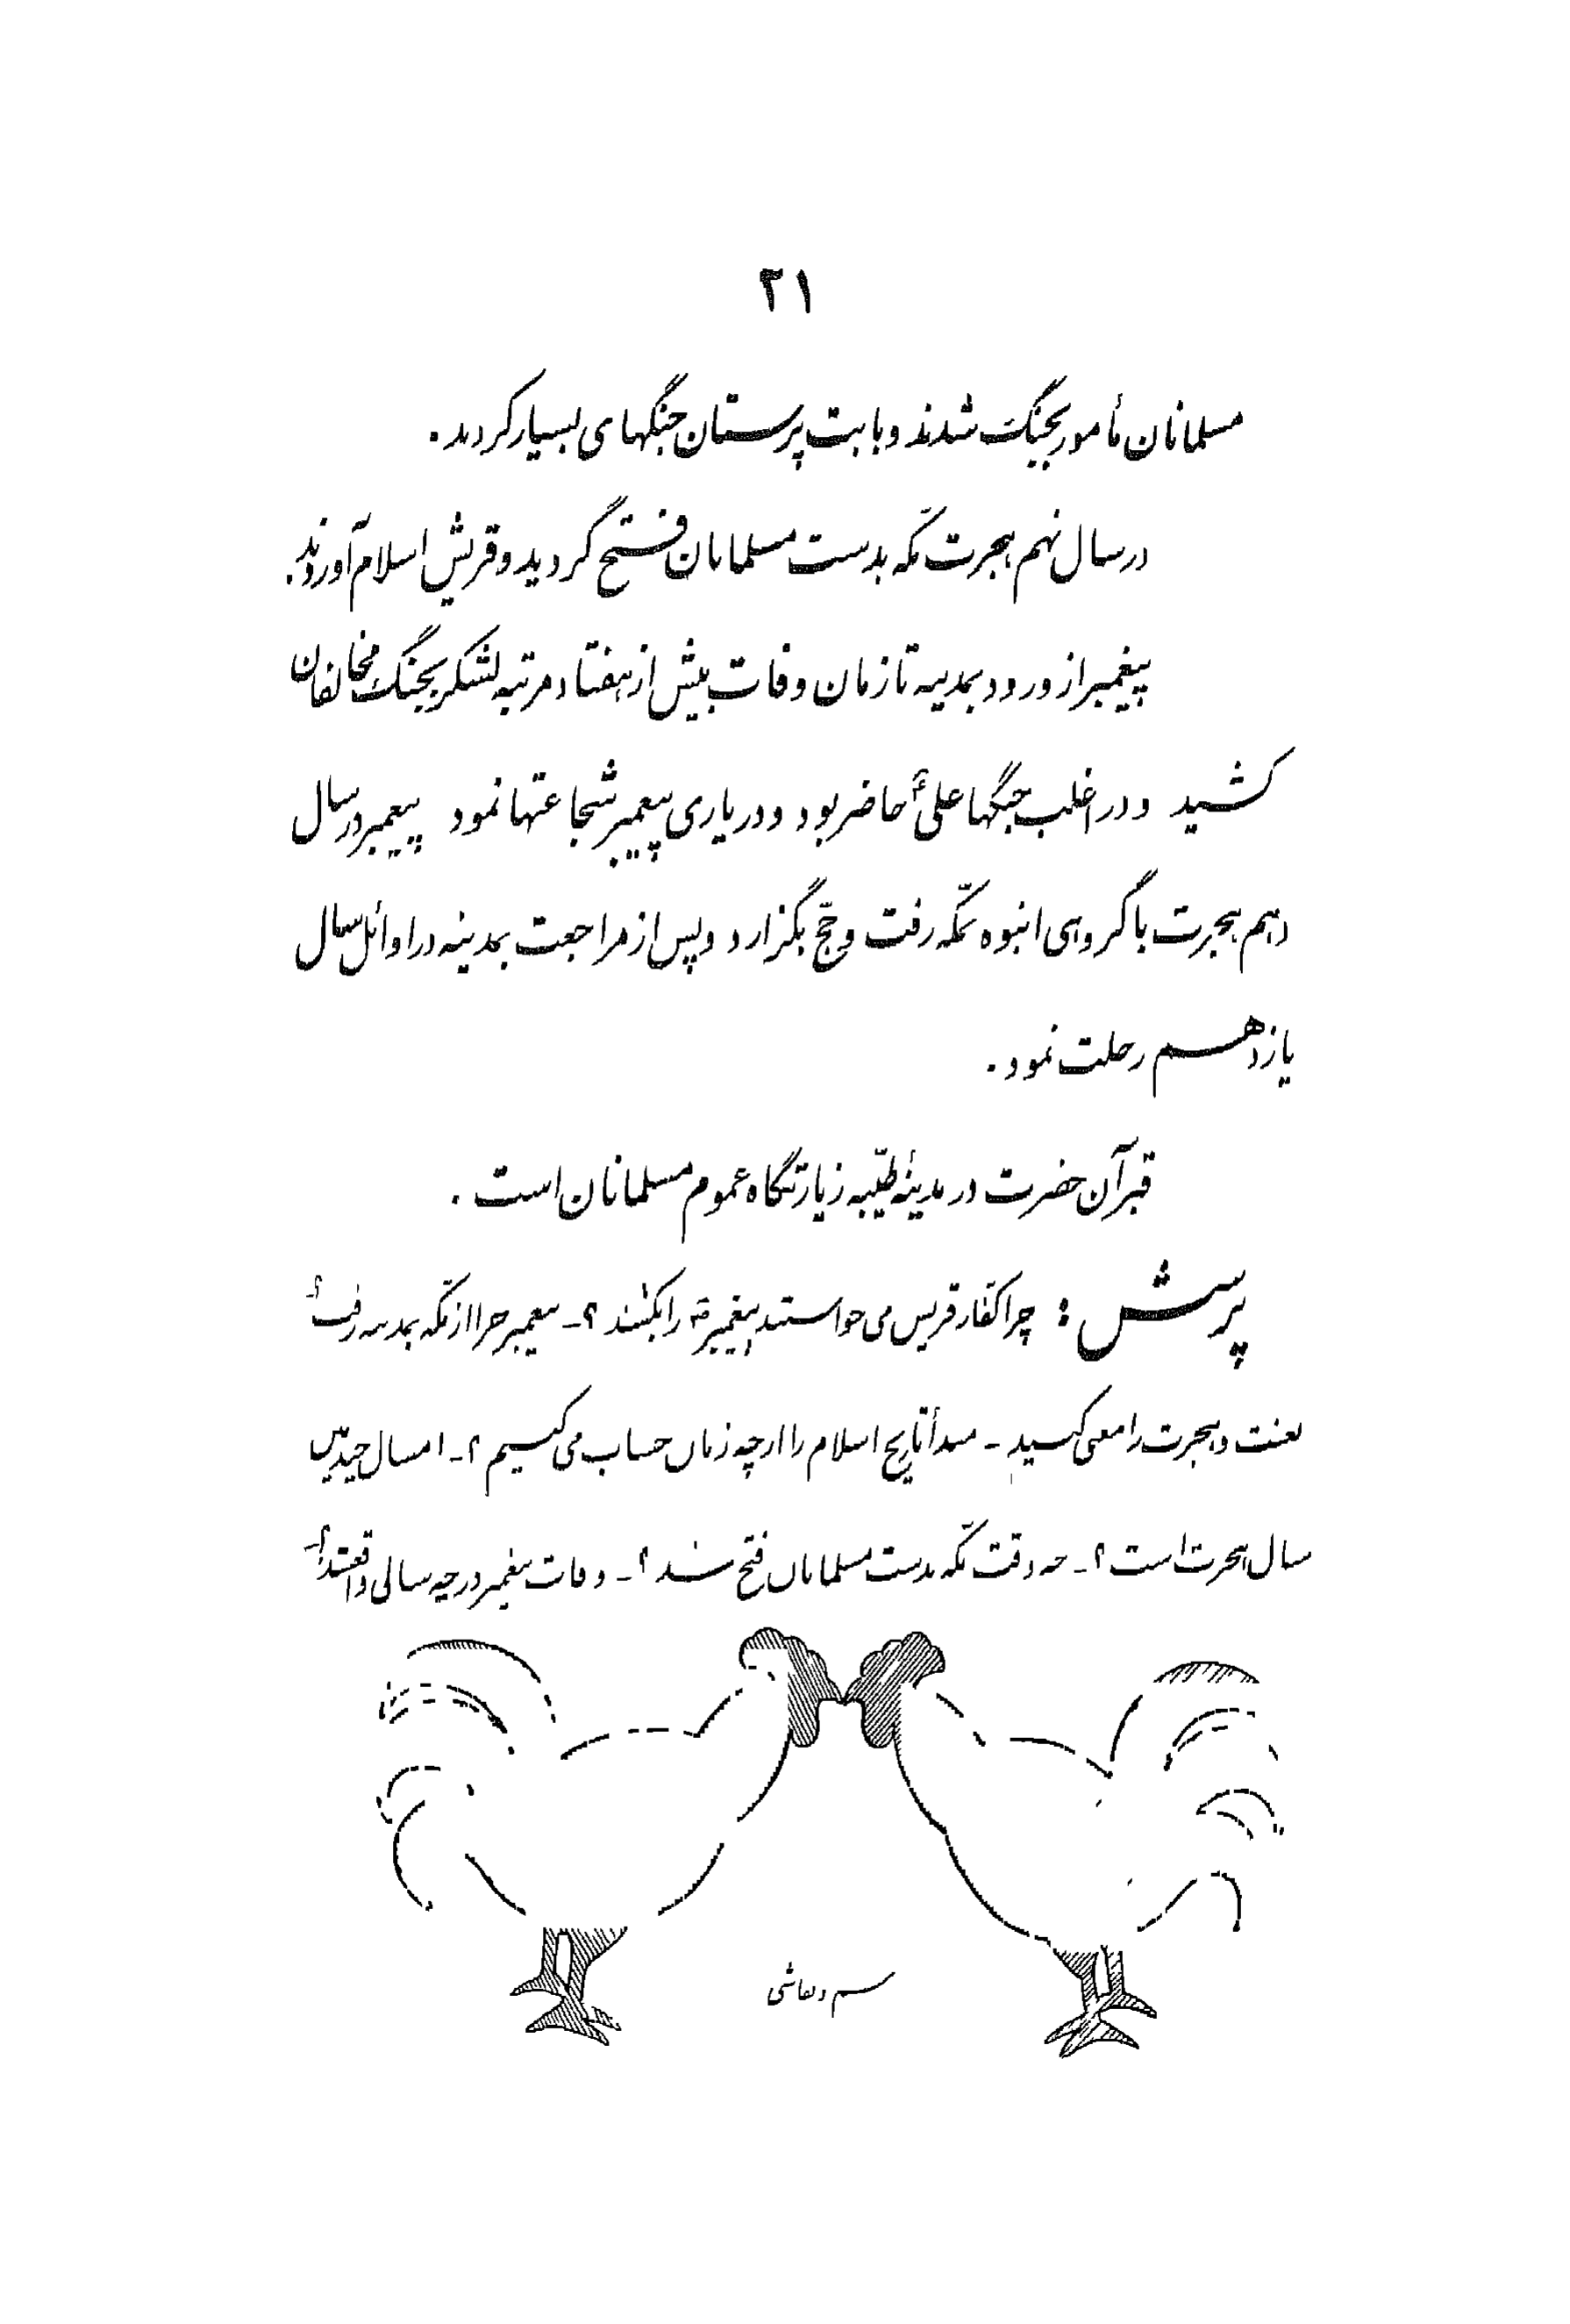 ۲۱
مسلمانان مأمور بجنگ شدند و با بت پرستان جنگهای بسیار کردند.
در سال نهم هجرت مکّه بدست مسلمانان فتح گردید و قریش اسلام آوردند.
پیغمبر از ورود بمدینه تا زمان وفات بیش از هفتاد مرتبه لشکر بجنگ مخالفان
کشید و در اغلب جنگها علیؑ حاضر بود و در یاری پیغمبر شجاعتها نمود پیغمبر در سال
دهم هجرت با گروهی انبوه بمکّه رفت و حجّ بگزارد و پس از مراجعت بمدینه در اوائل سال
یازدهم رحلت نمود.
قبر آن حضرت در مدینهٔ طیّبه زیارتگاه عموم مسلمانان است.
پرسش: چرا کفّار قریش می خواستند پیغمبر را بکشند؟ - پیغمبر چرا از مکّه بمدینه رفت؟ -
بعثت و هجرت را معنی کنید - مبدأ تاریخ اسلام را از چه زمان حساب می کنیم؟ - امسال چندمین
سال هجرت است؟ - چه وقت مکّه بدست مسلمانان فتح شد؟ - وفات پیغمبر در چه سالی واقع شد؟ -
رسم و نقاشی